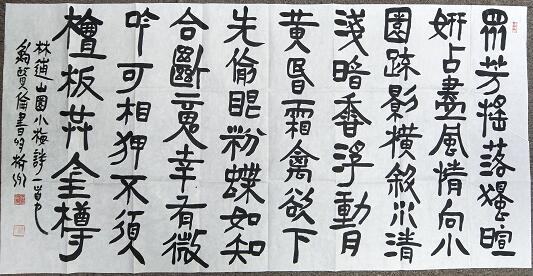 眾芳搖落獨暄
妍占盡風情向小
園疎影橫斜水清
淺暗香浮動月
黃昏霜禽欲下
先偷眼粉蝶如知
合斷魂幸有微
吟可相狎不須
檀板共金樽
林逋山園小梅詩一首
賢倫書